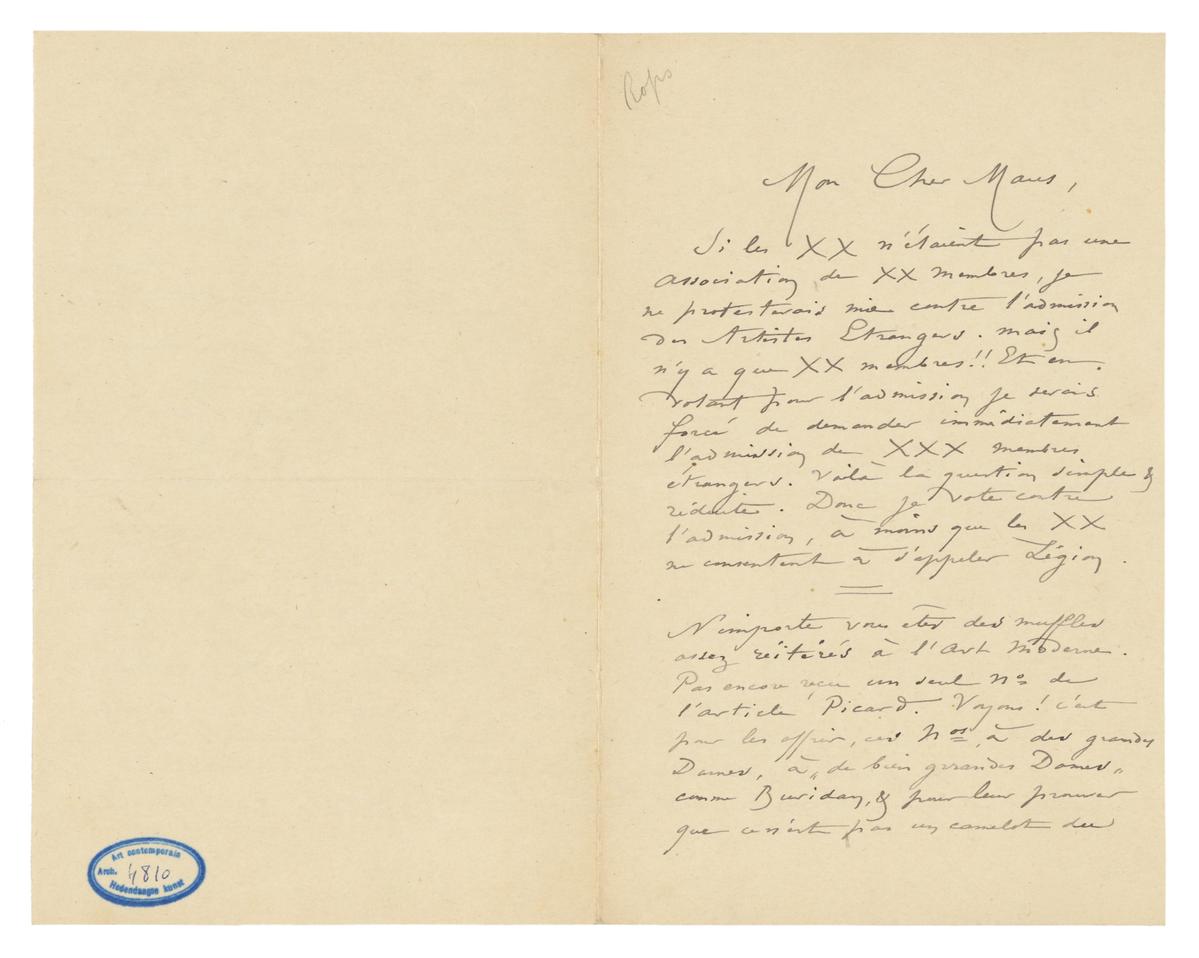 Rops
Mon Cher Maus,
Si les XX n'étaient pas une
association de XX membres, je
ne protesterais mie contre l'admission
des Artistes Etrangers. mais il
n'y a que XX membres!! Et en
votant pour l'admission je serais
forcé de demander immédiatement
l'admission de XXX membres
étrangers. Voilà la question simple &
réduite. Donc je vote contre
l'admission, à moins que les XX
ne consentent à s'appeler Légion.
N'importe vous êtes des muffles
assez réitérés à l'Art Moderne.
Pas encore reçu un seul Nos de
l'article Picard. Voyons! c'est
pour les offrir, ces Nos, à des grandes
Dames, à „de bien grandes Dames„
comme Buridan, & pour leur prouver
que ce n'est pas un camelot du
Art contemporain
Arch. 4810
Hedendaagse kunst